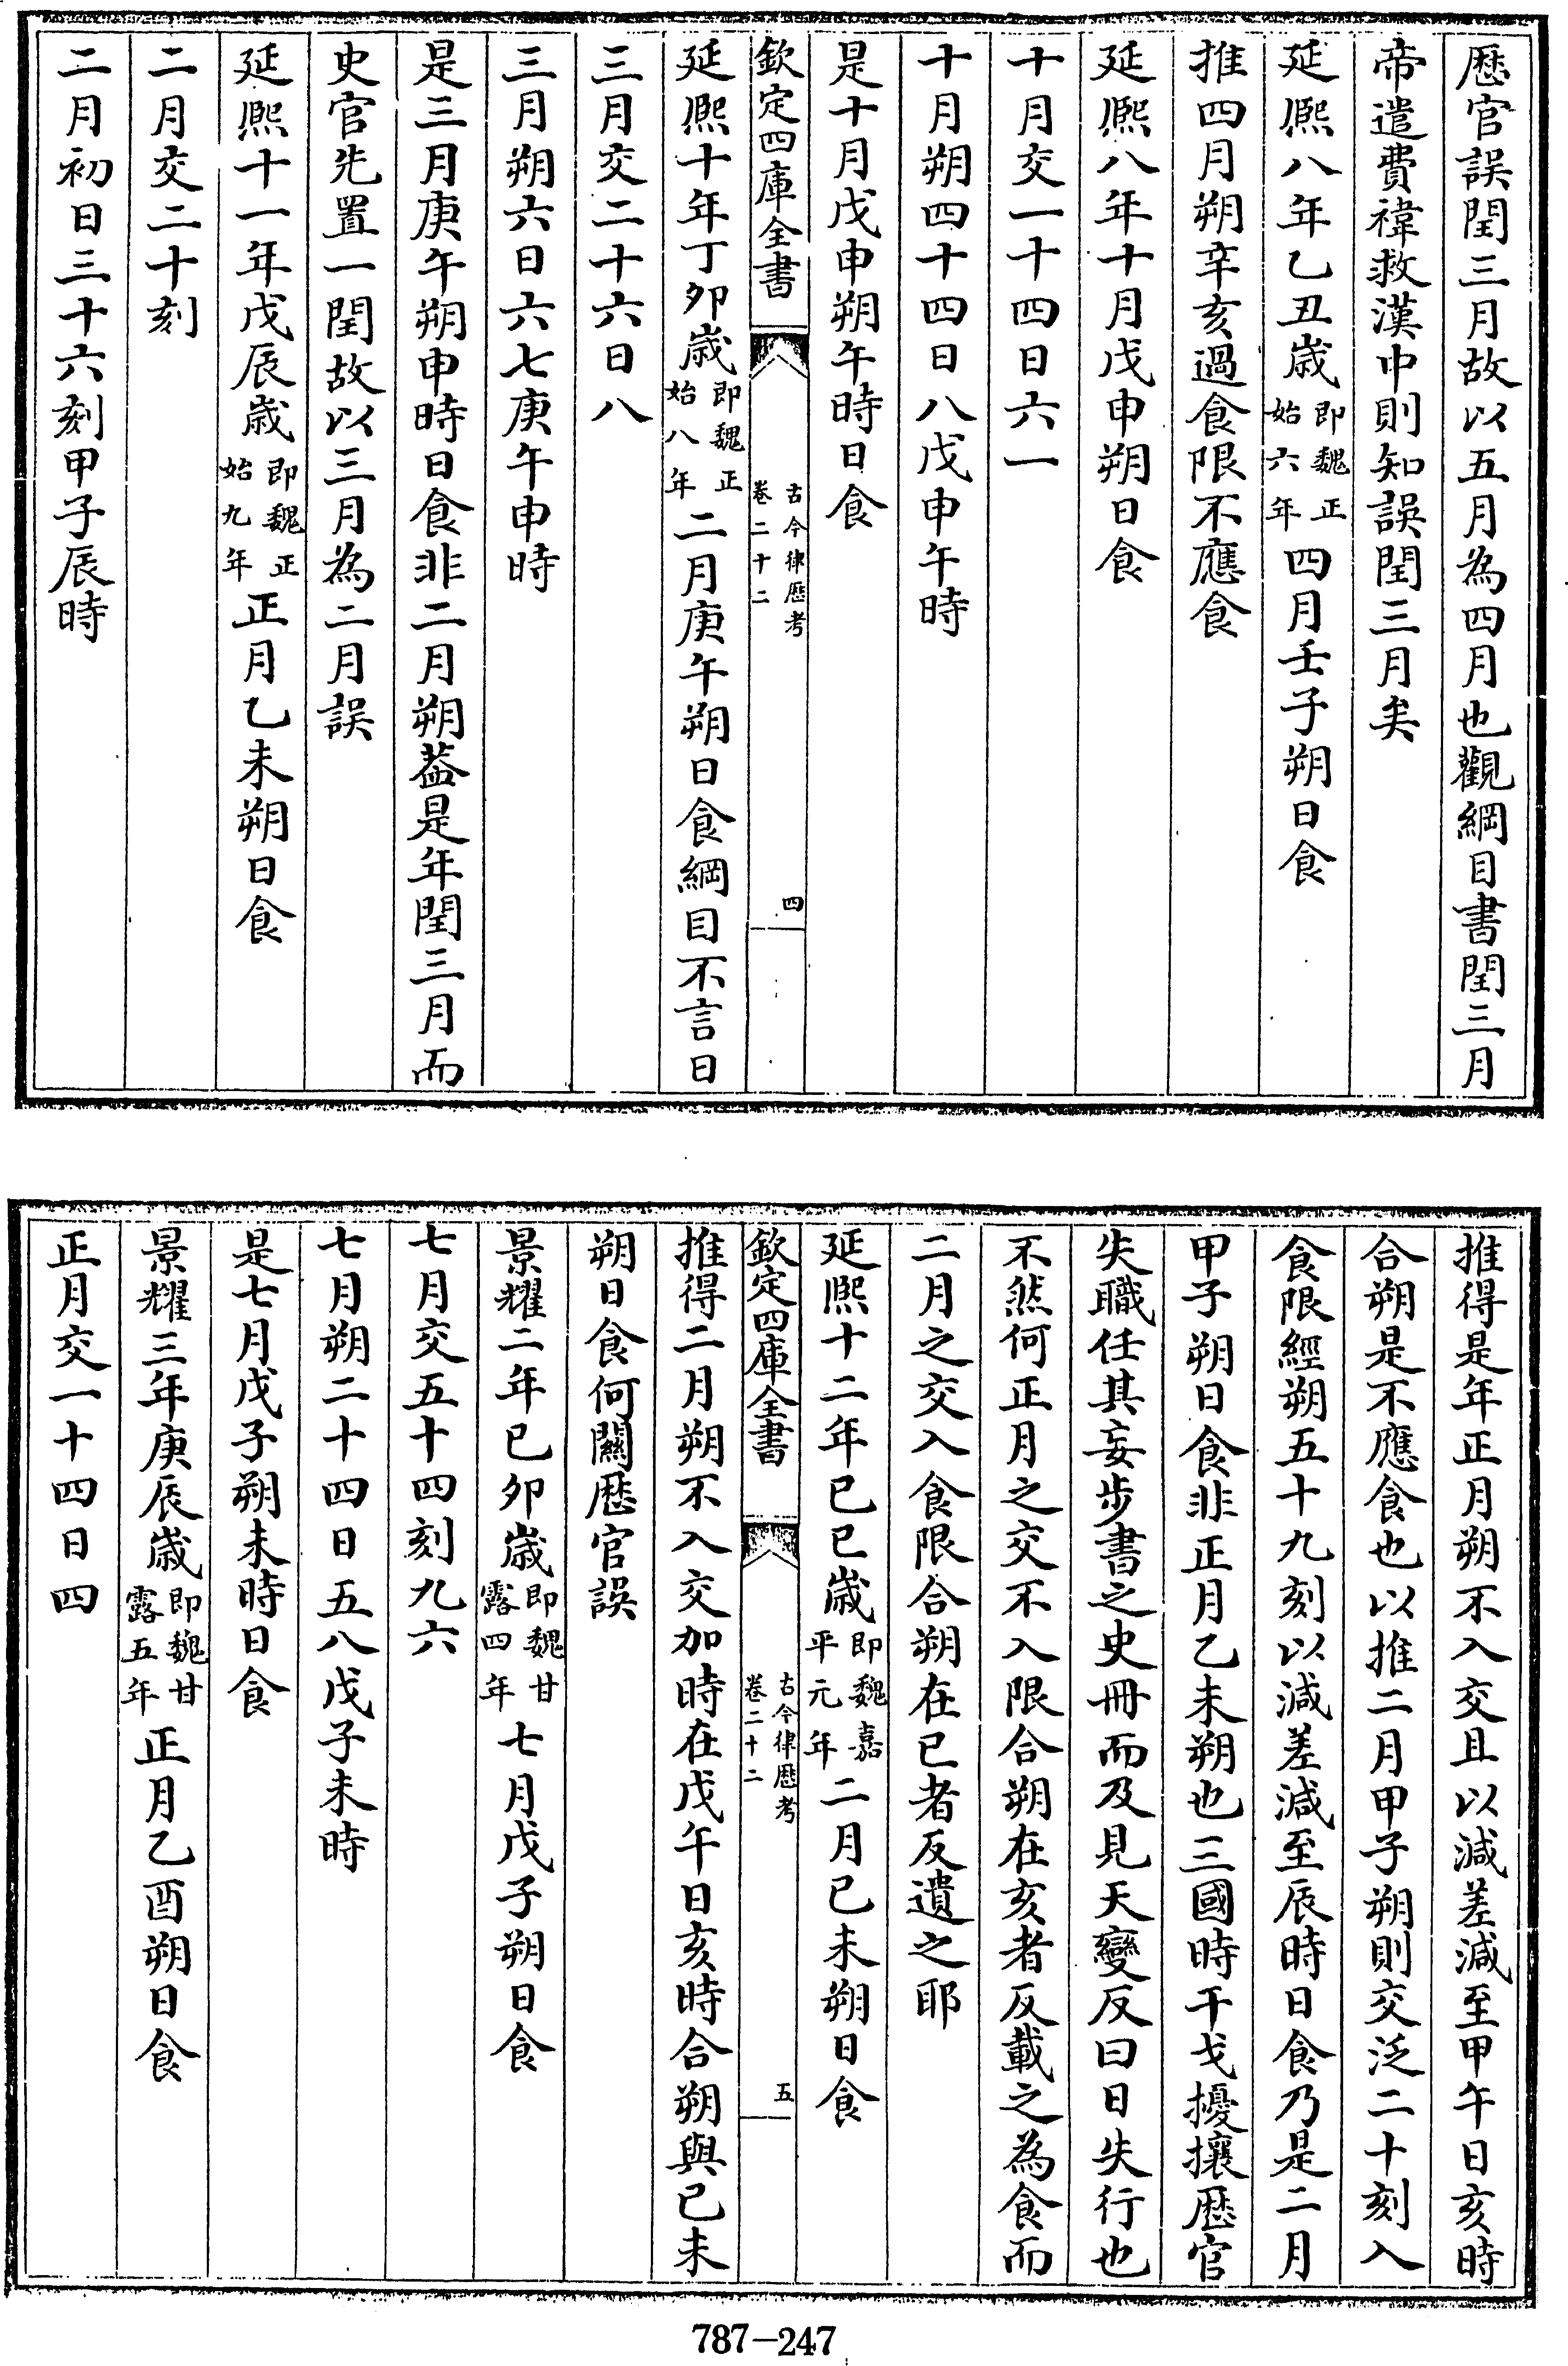 歴官誤閏三月故以五月為四月也觀綱目書閏三月
帝遣費禕救漢中則知誤閏三月矣
延熈八年乙丑歳即魏正始六年四月壬子朔日食
推四月朔辛亥過食限不應食
延熈八年十月戊申朔日食
十月交一十四日六一
十月朔四十四日八戊申午時
是十月戊申朔午時日食
欽定四庫全書 古今律歴考 卷二十二 四
延熈十年丁卯歳即魏正始八年二月庚午朔日食綱目不言日
三月交二十六日八
三月朔六日六七庚午申時
是三月庚午朔申時日食非二月朔葢是年閏三月而
史官先置一閏故以三月為二月誤
延熈十一年戊辰歳即魏正始九年正月乙未朔日食
二月交二十刻
二月初日三十六刻甲子辰時
推得是年正月朔不入交且以減差減至甲午日亥時
合朔是不應食也以推二月甲子朔則交泛二十刻入
食限經朔五十九刻以減差減至辰時日食乃是二月
甲子朔日食非正月乙未朔也三國時干戈擾攘歴官
失職任其妄步書之史冊而及見天變反曰日失行也
不然何正月之交不入限合朔在亥者反載之為食而
二月之交入食限合朔在巳者反遺之耶
延熈十二年己巳歳即魏嘉平元年二月己未朔日食
欽定四庫全書 古今律歴考 卷二十二 五
推得二月朔不入交加時在戊午日亥時合朔與己未
朔日食何關歴官誤
景耀二年己卯歳即魏甘露四年七月戊子朔日食
七月交五十四刻九六
七月朔二十四日五八戊子未時
是七月戊子朔未時日食
景耀三年庚辰歳即魏甘露五年正月乙酉朔日食
正月交一十四日四
787-247